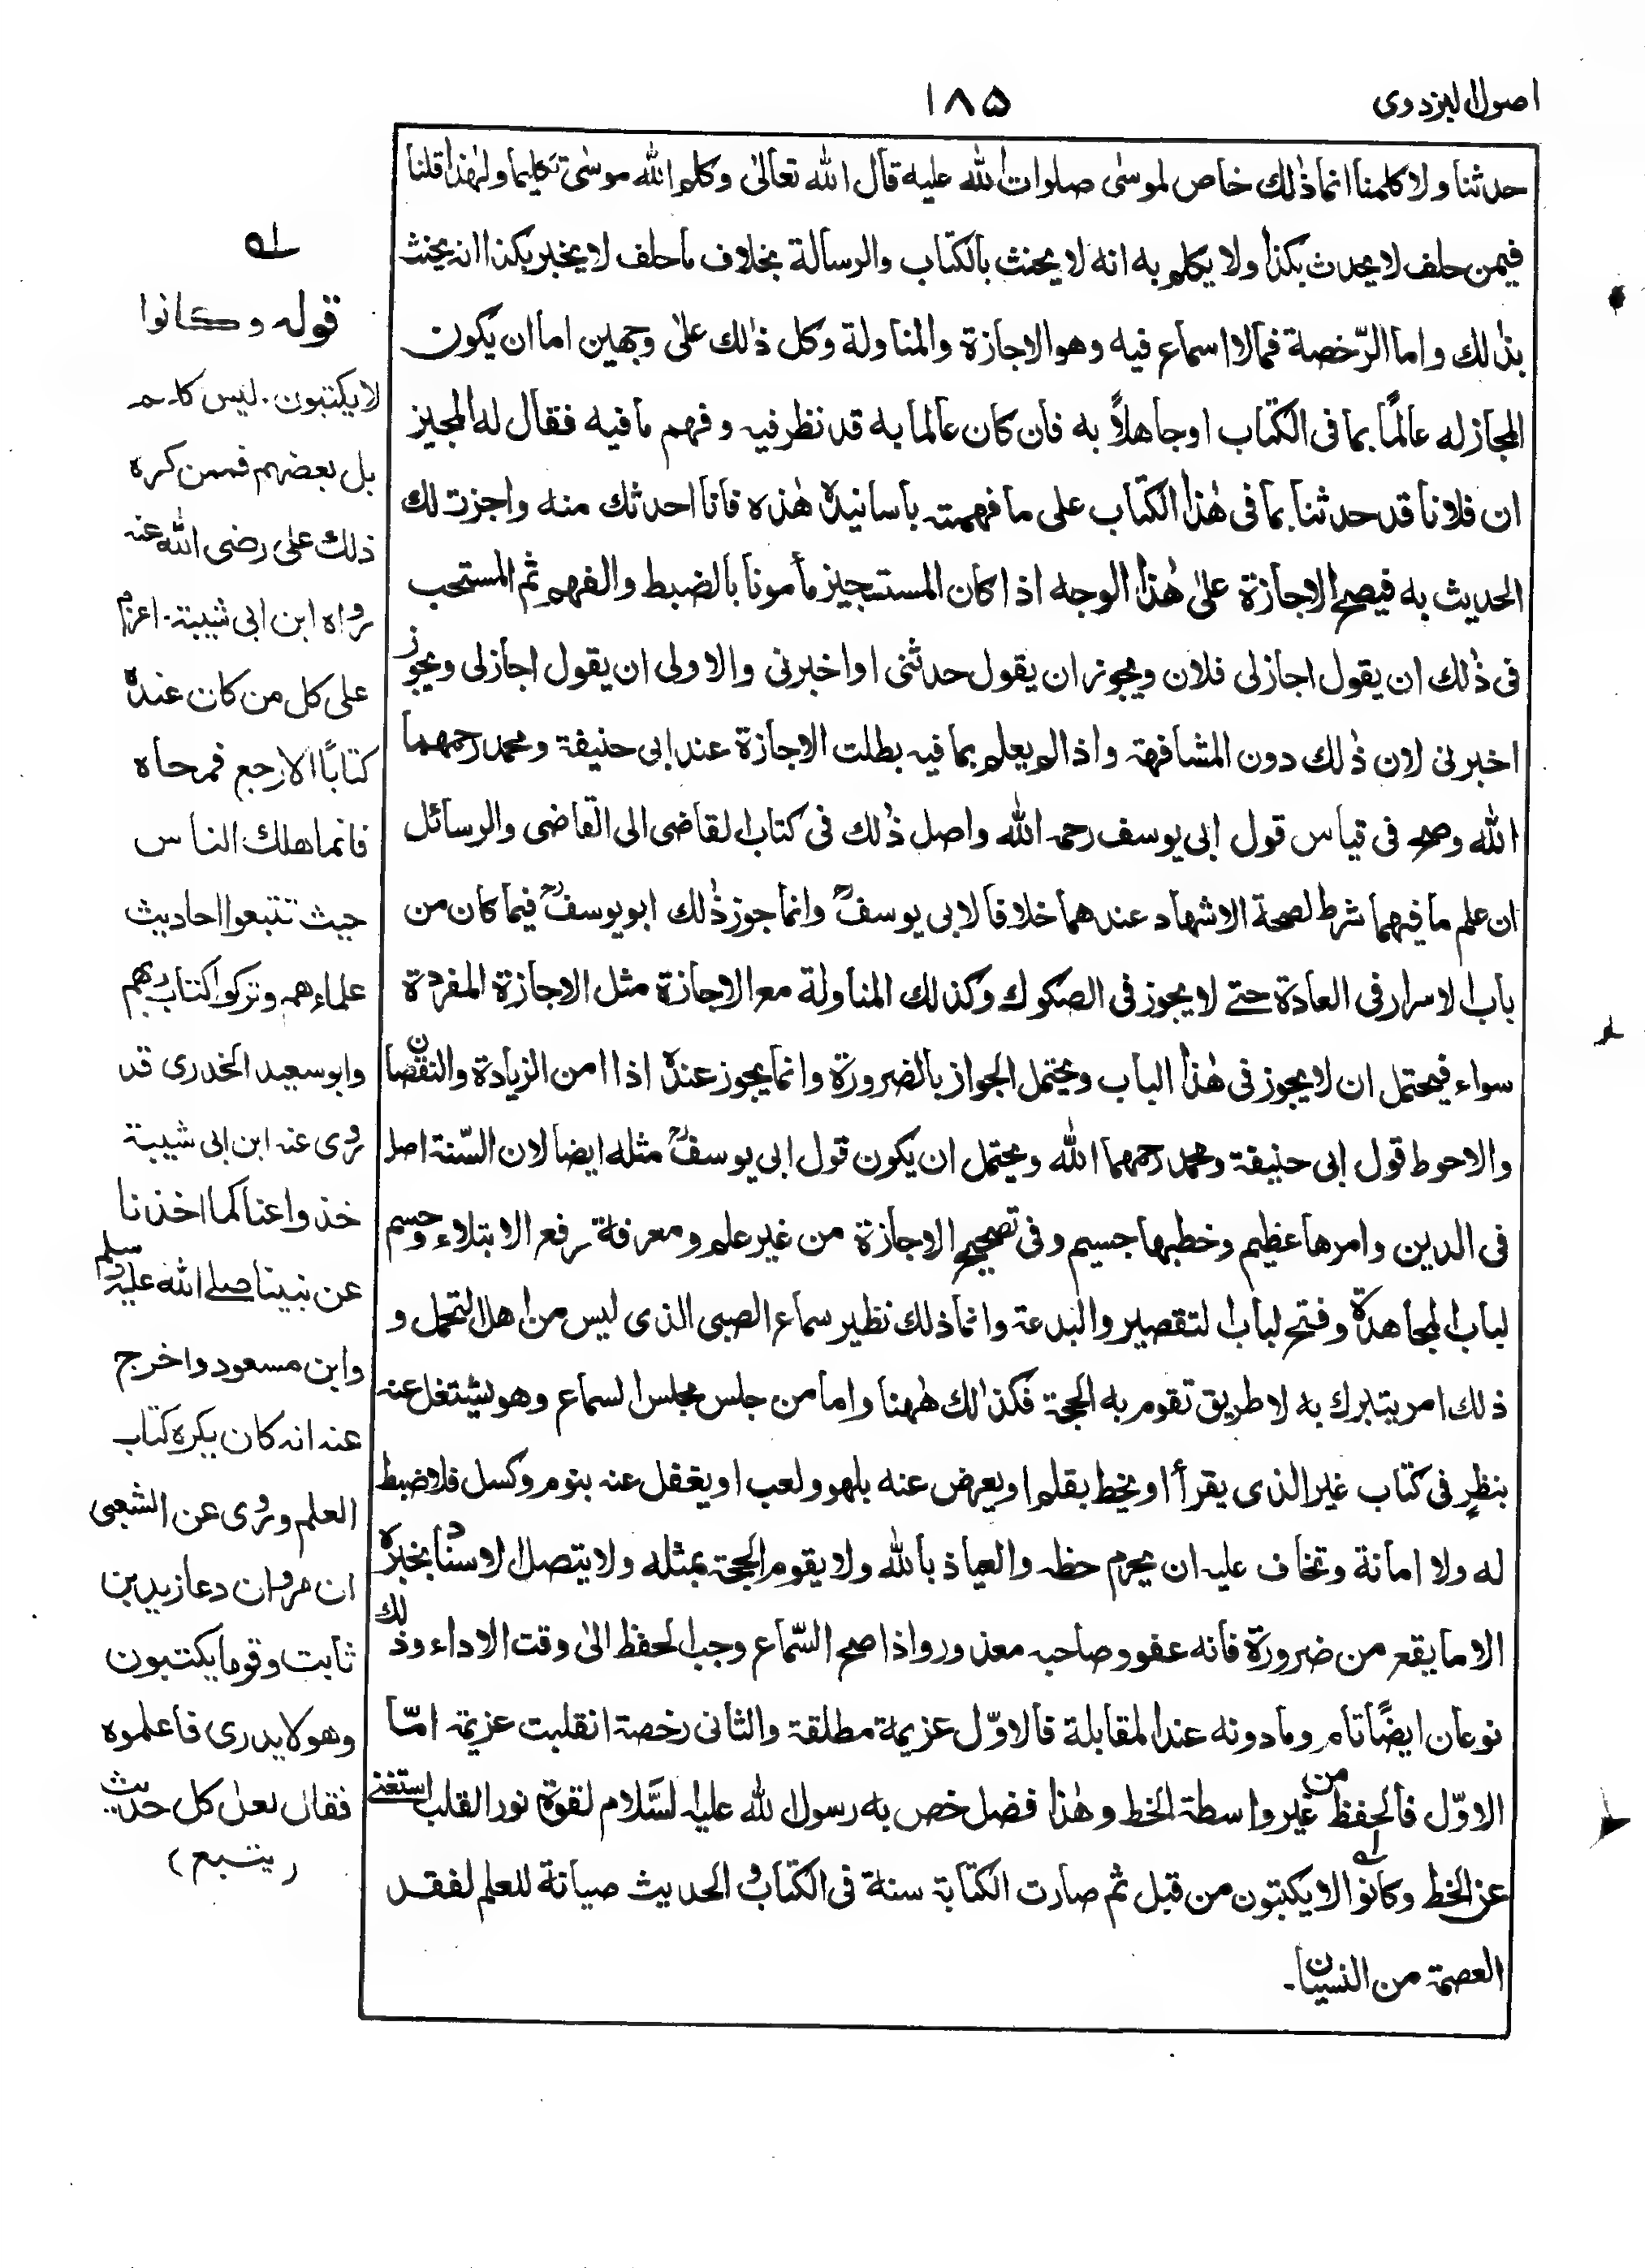 اصول البزدوی
۱۸۵
حدثنا ولا كلمنا انما ذٰلك خاص لموسٰى صلوات الله عليه قال الله تعالىٰ وكلم الله موسٰى تكليما ولهٰذا قلنا
فيمن حلف لا يحدث بكذا ولا يكلم به انه لا يحنث بالكتاب والرسالة بخلاف ما حلف لا يخبر بكذا انه يحنث
بذٰلك واما الرّخصة فما لا اسماع فيه وهو الاجازة والمناولة وكل ذٰلك علىٰ وجهين اما ان يكون
المجاز له عالمًا بما فى الكتاب او جاهلاً به فان كان عالما به قد نظر فيه وفهم ما فيه فقال له المجيز
ان فلانا قد حدثنا بما فى هٰذا الكتاب على ما فهمته باسانيده هٰذه فانا احدثك منه واجزت لك
الحديث به فيصح الاجازة علىٰ هٰذا الوجه اذا كان المستجيز مأمونا بالضبط والفهم ثم المستحب
فى ذٰلك ان يقول اجاز لى فلان ويجوز ان يقول حدثنى او اخبرنى والاولى ان يقول اجاز لى ويجوز
اخبرنى لان ذٰلك دون المشافهة واذا لم يعلم بما فيه بطلت الاجازة عند ابى حنيفة ومحمد رحمهما
الله وصح فى قياس قول ابى يوسف رحمه الله واصل ذٰلك فى كتاب القاضى الى القاضى والرسائل
ان علم ما فيهما شرط لصحة الاشهاد عندهما خلافا لابى يوسفؒ وانما جوز ذٰلك ابو يوسفؒ فيما كان من
باب الاسرار فى العادة حتے لا يجوز فى الصكوك وكذلك المناولة مع الاجازة مثل الاجازة المفردة
سواء فيحتمل ان لا يجوز فى هٰذا الباب ويحتمل الجواز بالضرورة وانما يجوز عنده اذا امن الزيادة والنقصان
والاحوط قول ابى حنيفة ومحمد رحمهما الله ويحتمل ان يكون قول ابى يوسفؒ مثله ايضا لان السّنة اصل
فى الدين وامرها عظيم وخطبها جسيم وفى تصحيح الاجازة من غير علم ومعرفة رفع الابتلاء وحسم
لباب المجاهدة وفتح لباب التقصير والبدعة وانما ذلك نظير سماع الصبى الذى ليس من اهل التحمل و
ذلك امر يتبرك به لا طريق تقوم به الحجة فكذٰلك هٰهنا واما من جلس مجلس السماع وهو يشتغل عنه
بنظرٍ فى كتاب غير الذى يقرأ او يخط بقلم او يعرض عنه بلهو ولعب او يغفل عنه بنوم وكسل فلا ضبط
له ولا امانة وتخاف عليه ان يحرم حظه والعياذ بالله ولا يقوم الحجة بمثله ولا يتصل الاسناد بخبره
الا ما يقع من ضرورة فانه عفو وصاحبه معذور واذا صح السّماع وجب الحفظ الىٰ وقت الاداء وذٰلك
نوعان ايضًا تام وما دونه عند المقابلة فالاوّل عزيمة مطلقة والثانى رخصة انقلبت عزيمة امّا
الاوّل فالحفظ من غير واسطة الخط وهٰذا فضل خص به رسول الله عليه السَّلام لقوة نور القلب استغنے
عن الخط وكانوا لا يكتبون من قبل ثم صارت الكتابة سنة فى الكتاب والحديث صيانة للعلم لفقد
العصمة من النسيان۔
له
قوله وكانوا
لا يكتبون. ليس كلهم
بل بعضهم فممن كره
ذلك على رضى الله عنه
رواه ابن ابى شيبة. اعزم
على كل من كان عنده
كتابًا الا رجع فمحاه
فانما هلك الناس
حيث تتبعوا احاديث
علماءهم وتركوا كتاب ربهم
وابو سعيد الخدرى قد
روى عنه ابن ابى شيبة
خذوا عنا كما اخذنا
عن نبينا صلے الله عليه وسلم
وابن مسعود واخرج
عنه انه كان يكره كتاب
العلم وروى عن الشعبى
ان مروان دعا زيد بن
ثابت وقوما يكتبون
وهو لا يدرى فاعلموه
فقال لعل كل حديث
(يتبع)